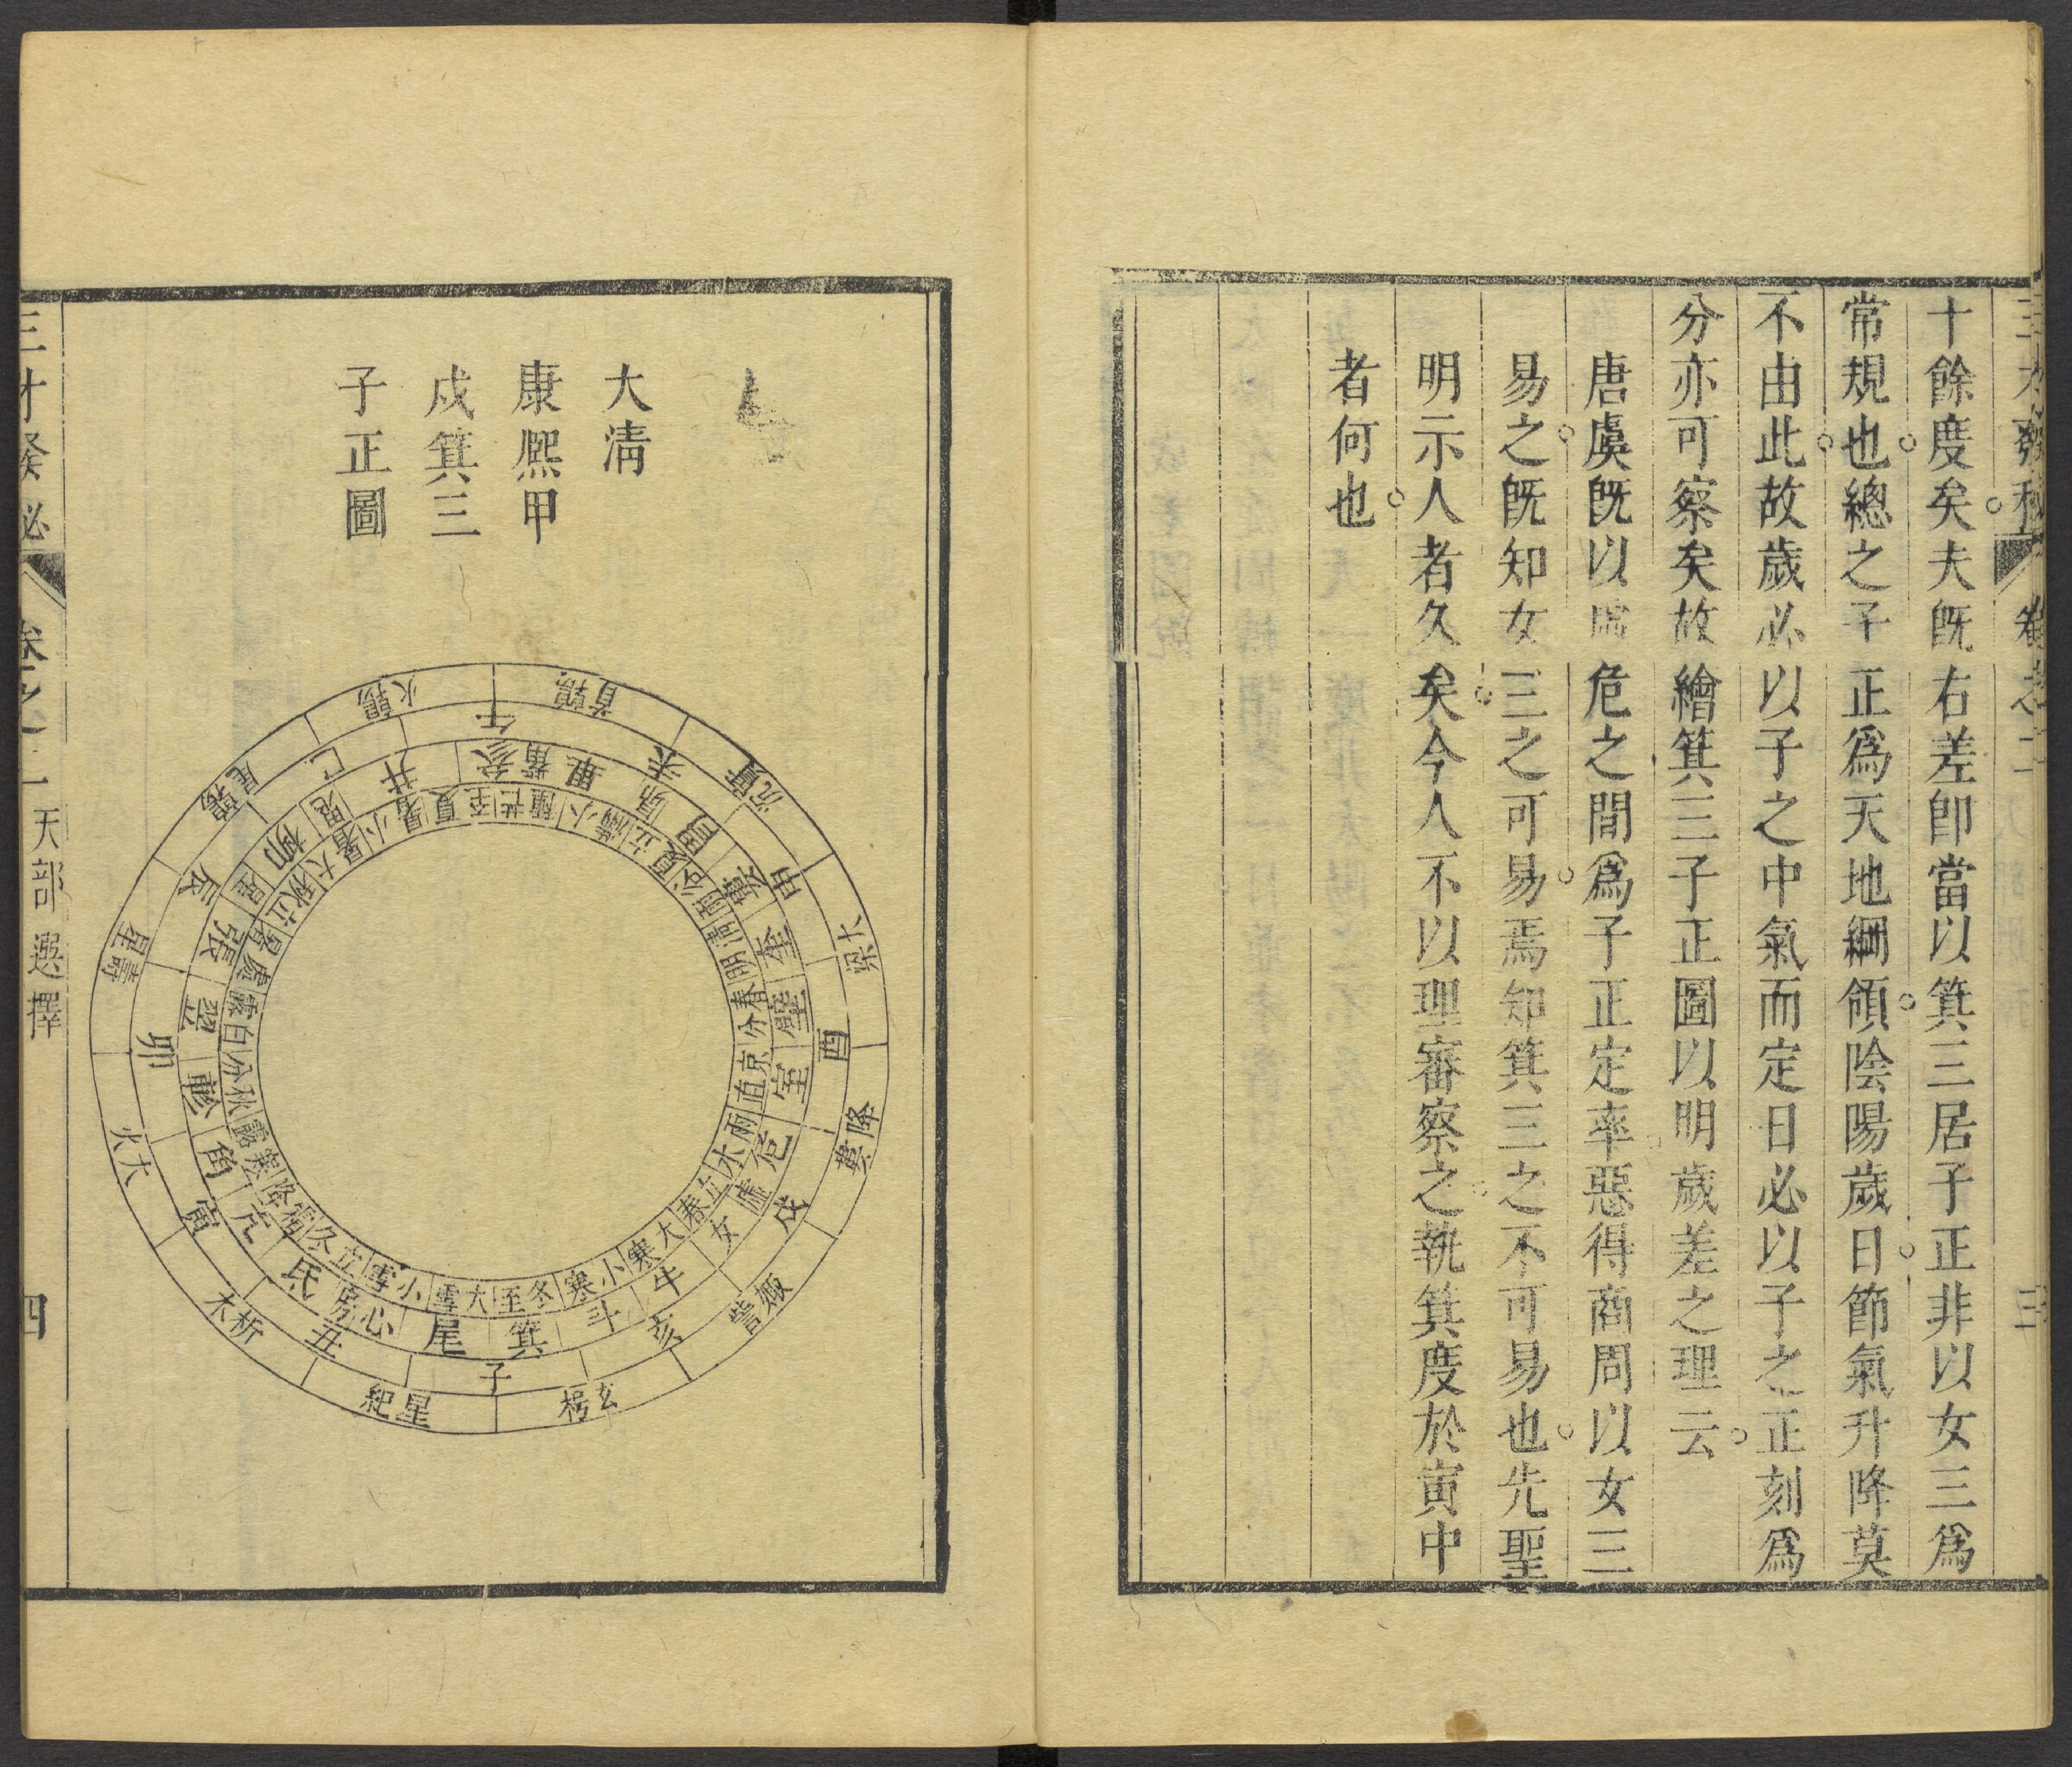 三才發秘
卷之二
三
十餘度矣夫旣右差卽當以箕三居子正非以女三爲
常規也總之子正爲天地綱領陰陽歲日節氣升降莫
不由此故歲必以子之中氣而定日必以子之正刻爲
分亦可察矣故繪箕三子正圖以明歲差之理云
唐虞旣以虛危之間爲子正定率惡得商周以女三
易之旣知女三之可易焉知箕三之不可易也先聖
明示人者久矣今人不以理審察之執箕度於寅中
者何也
大淸
康熙甲
戍箕三
子正圖
鶉首
沉實
大梁
降婁
娵訾
玄枵
星紀
析木
大火
壽星
鶉尾
鶉火
午
未
申
酉
戌
亥
子
丑
寅
卯
辰
巳
井
參
觜
畢
昴
胃
婁
奎
壁
室
危
虛
女
牛
斗
箕
尾
心
房
氐
亢
角
軫
翌
張
星
柳
鬼
夏至
芒種
小滿
立夏
谷雨
清明
春分
京直
雨水
立春
大寒
小寒
冬至
大雪
小雪
立冬
霜降
寒露
秋分
白露
處暑
立秋
大暑
小暑
三才發秘
卷之二
天部選擇
四